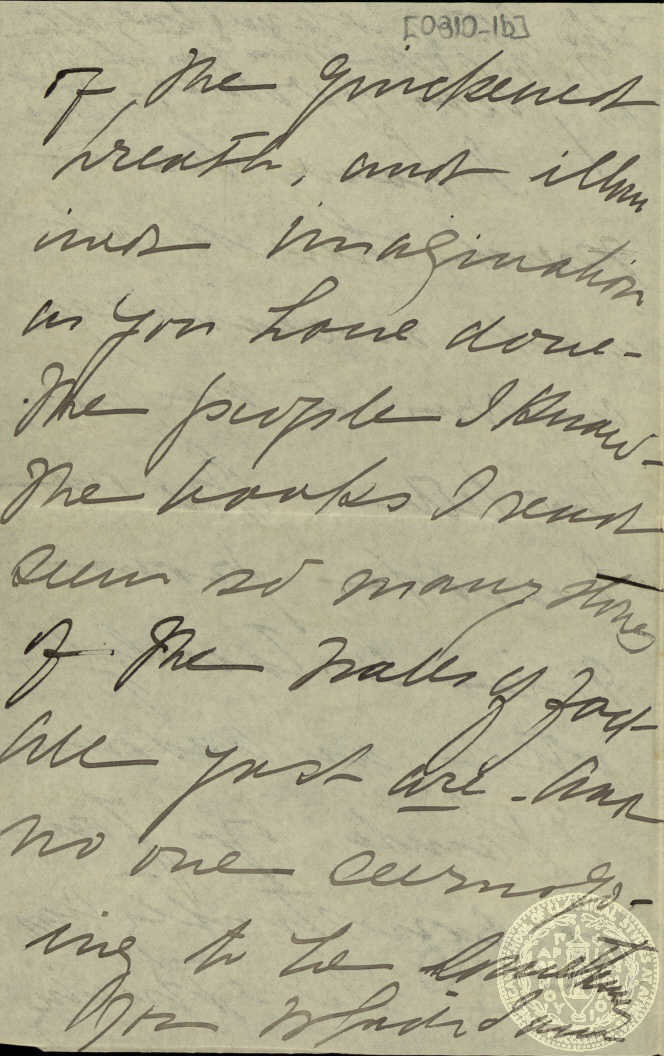 [0310-1b]
of the quickened
breath, and illum
ined imagination
as you have done-
The people I know-
The books I read
seem so many stones
of the walls of fact
All just are - And
no one seems go-
ing to be Something
You